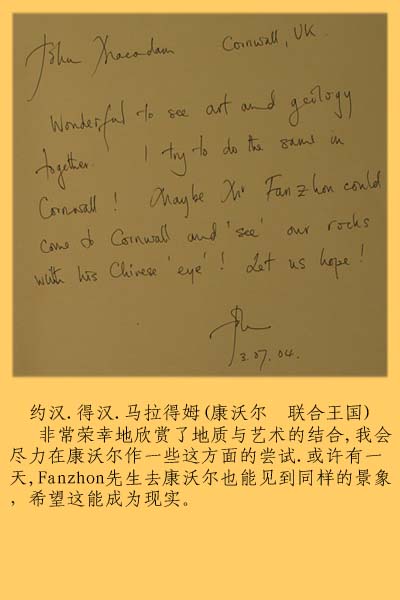 John Macadam Cornwall, UK.
Wonderful to see art and geology
together. I try to do the same in
Cornwall! Maybe Mr Fanzhon could
come to Cornwall and 'see' our rocks
with his Chinese 'eye'! Let us hope!
John
3.07.04.
约汉.得汉.马拉得姆(康沃尔 联合王国)
非常荣幸地欣赏了地质与艺术的结合,我会
尽力在康沃尔作一些这方面的尝试.或许有一
天,Fanzhon先生去康沃尔也能见到同样的景象
,希望这能成为现实。